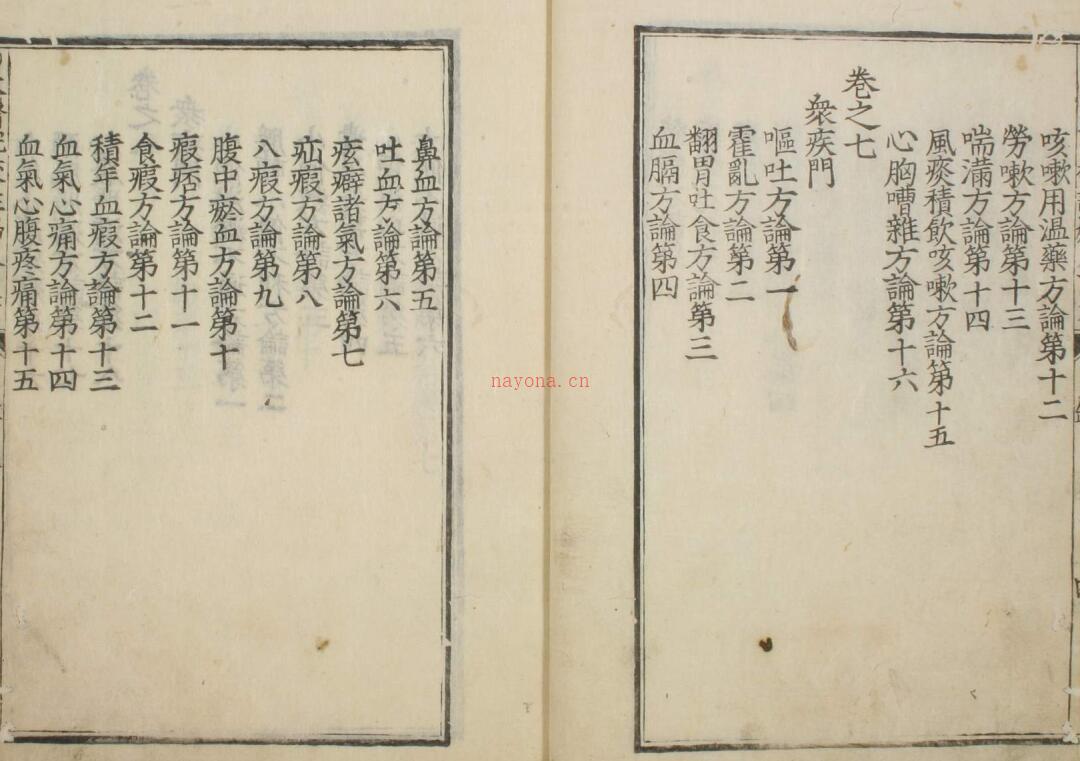 咳嗽用温藥方論第十二
勞嗽方論第十三
喘滿方論第十四
風痰積飲咳嗽方論第十五
心胸嘈雜方論第十六
卷之七
衆疾門
嘔吐方論第一
霍亂方論第二
翻胃吐食方論第三
血膈方論第四
鼻血方論第五
吐血方論第六
痃癖諸氣方論第七
疝瘕方論第八
八瘕方論第九
腹中瘀血方論第十
瘕痞方論第十一
食瘕方論第十二
積年血瘕方論第十三
血氣心痛方論第十四
血氣心腹疼痛第十五
nayona.cn